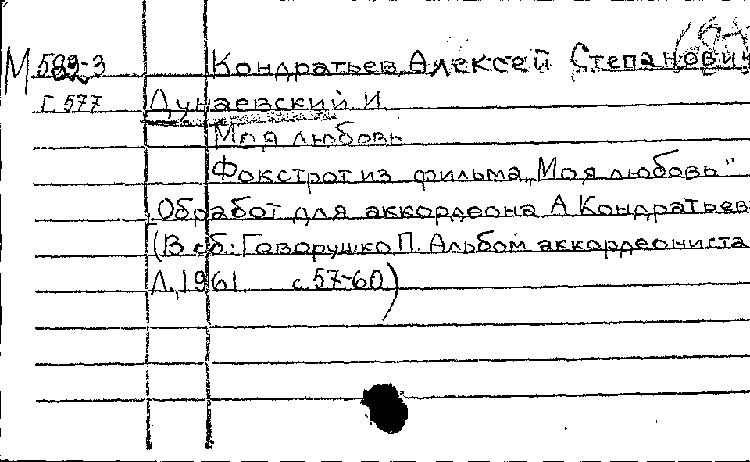 М 582-3 Кондратьев Алексей Степанович
Г 577 Дунаевский И.
Моя любовь
Фокстрот из фильма „Моя любовь"
Обработ для аккордеона А Кондратьев
(В сб: Говорушко П. Альбом аккордеониста
Л., 1961 с. 57-60)